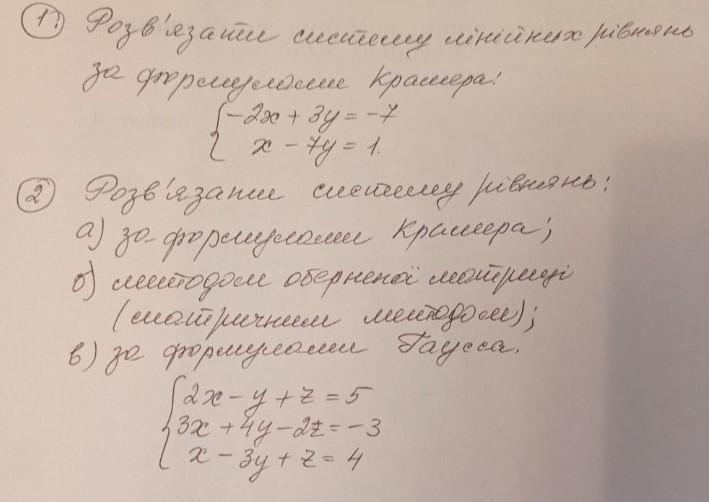 1. Розв'язати систему лінійних рівнянь
за формулами Крамера:
{-2x + 3y = -7
x - 7y = 1.
2 Розв'язати систему рівнянь:
а) за формулами Крамера;
б) методом оберненої матриці
(матричним методом);
в) за формулами Гаусса.
{2x - y + z = 5
3x + 4y - 2z = -3
x - 3y + z = 4